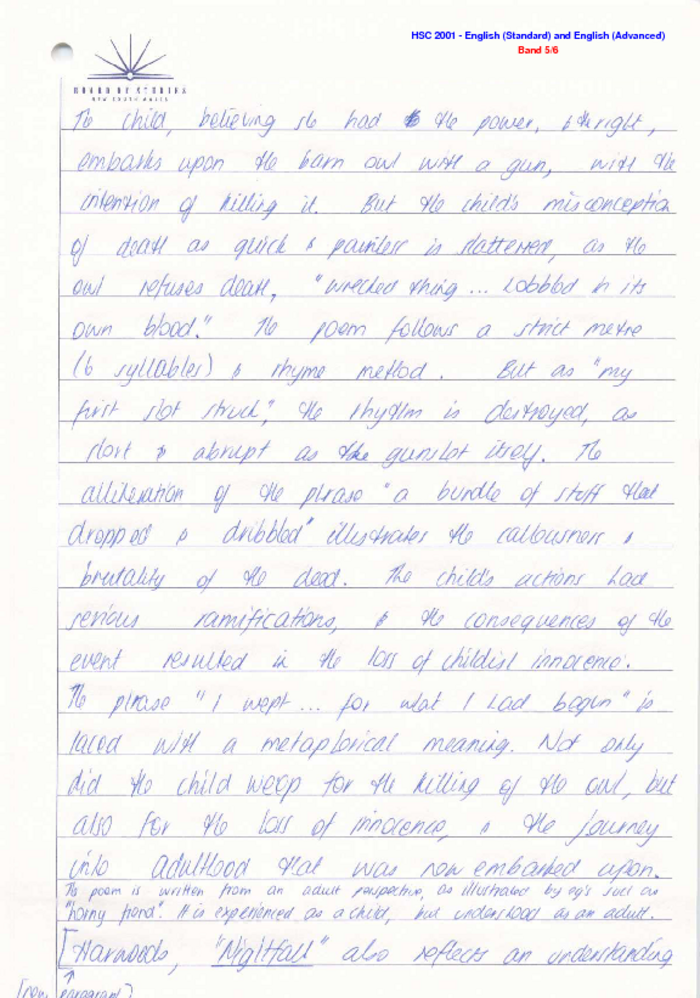 HSC 2001 - English (Standard) and English (Advanced)
Band 5/6
BOARD OF STUDIES
NEW SOUTH WALES
The child, believing she had the power, & the right,
embarks upon the barn owl with a gun, with the
intention of killing it. But the child's misconception
of death as quick & painless is shattered, as the
owl refuses death, "wrecked thing ... hobbled in its
own blood." The poem follows a strict metre
(6 syllables) & rhyme method. But as "my
first shot struck", the rhythm is destroyed, as
short & abrupt as the gunshot itself. The
alliteration of the phrase "a bundle of stuff that
dropped & dribbled" illustrates the callousness &
brutality of the dead. The child's actions had
serious ramifications, & the consequences of the
event resulted in the loss of childish innocence.
The phrase "I wept ... for what I had begun" is
laced with a metaphorical meaning. Not only
did the child weep for the killing of the owl, but
also for the loss of innocence, & the journey
into adulthood that was now embarked upon.
The poem is written from an adult perspective, as illustrated by eg's such as
"horny fiend". It is experienced as a child, but understood as an adult.
[Harwoods, "Nightfall" also reflects an understanding
[new paragraph]